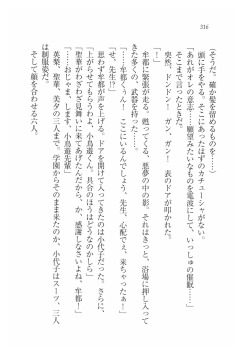 316
（そうだ、確か髪を留めるものを……）
頭に手をやる。そこにあったはずのカチューシャがない。
「あれがオレの意志……願望みたいなものを電波にして、いっしゅの催眠……」
そこまで言ったときだ。
突然、ドンドン！　ガン、ガン！　表のドアが叩かれた。
「……牟都くぅん！　ここにいるんでしょう。先生、心配でぇ、来ちゃったぁ！」
牟都に緊張が走る。甦ってくる、悪夢の中の影。それはきっと、浴場に押し入って
きた多くの、武器を持った……。
「せ、先生!?」
思わず牟都が声を上げる。ドアを開けて入ってきたのは小代子だった。
「上がらせてもらうわよ、小鳥遊くん。具合のほうはどうなのかしら」
「聖華がわざわざお見舞いに来てあげたんだから、か、感謝しなさいよね、牟都！」
「おじゃま、します、小鳥遊先輩」
英梨、聖華、美夕の三人まで。学園からそのまま来たのか、小代子はスーツ、三人
は制服姿だ。
そして顔を合わせる六人。